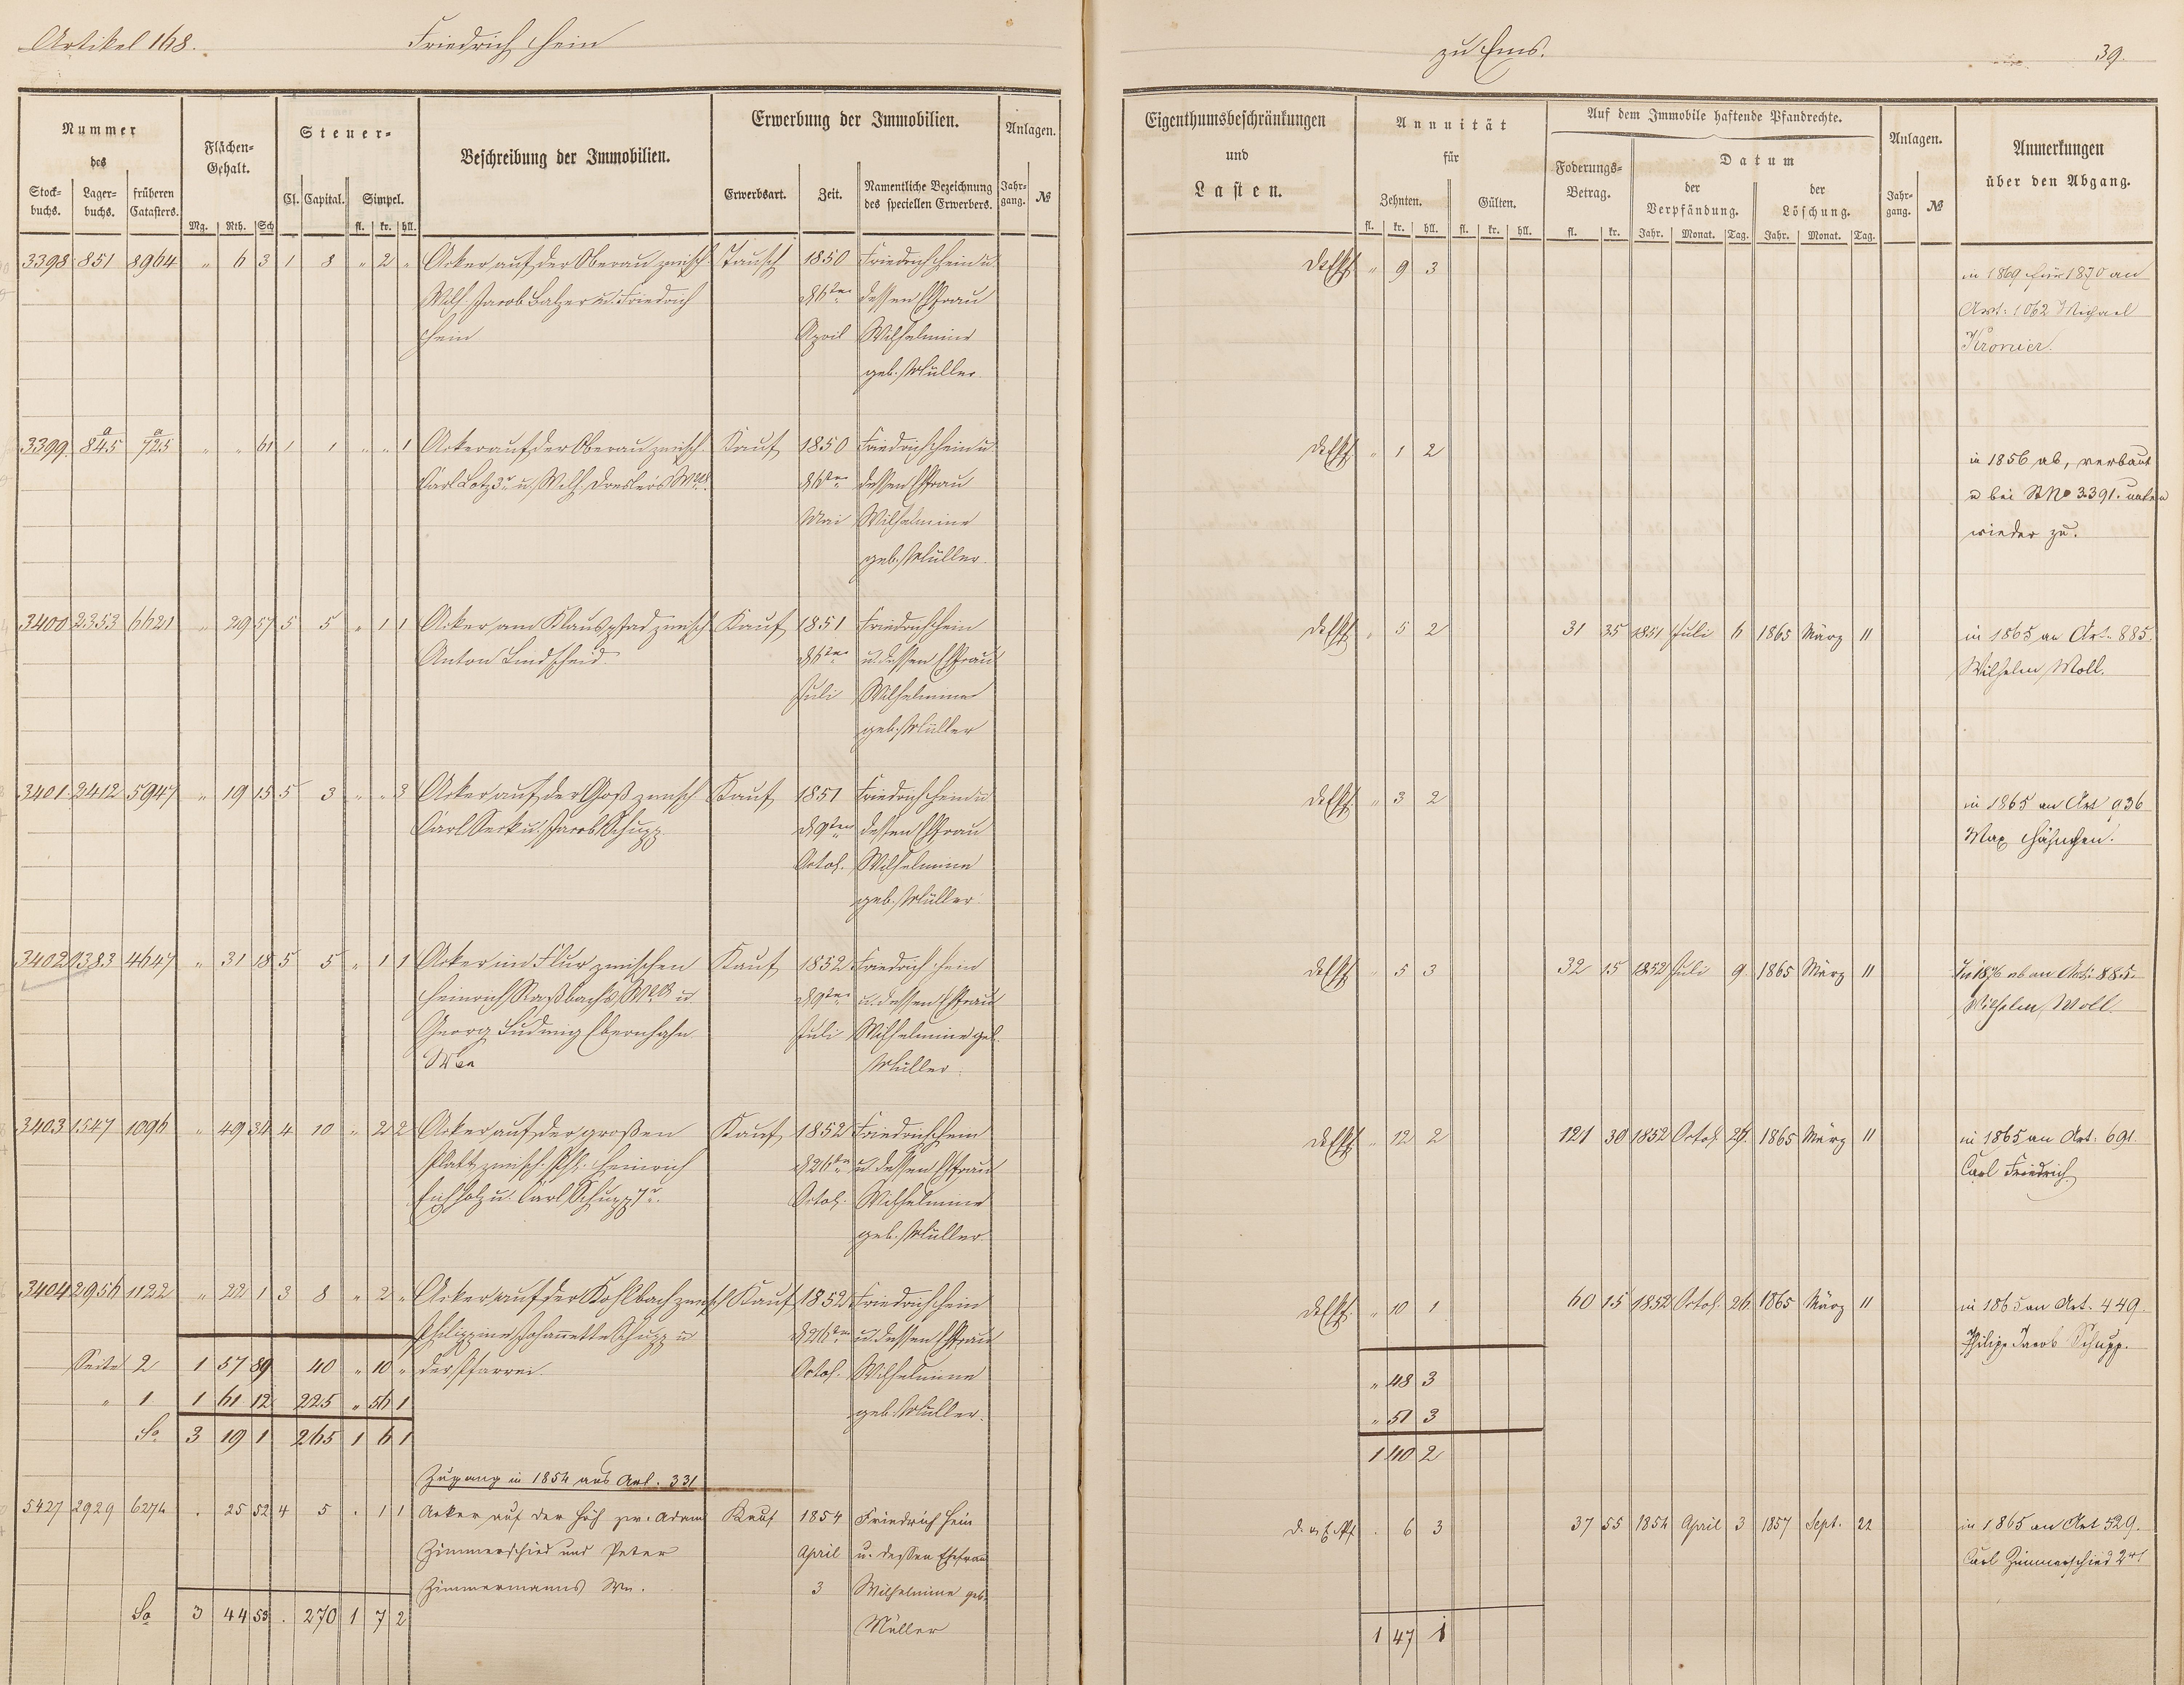 Artikel 168. Friedrich Hein zu Ems. 39.
Nummer des
Stockbuchs. Lagerbuchs. früheren Catasters.
Flächen-Gehalt.
Mg. Rth. Sch
Steuer-
Cl. Capital. Simpel.
fl. kr. hll.
Beschreibung der Immobilien.
Erwerbung der Immobilien.
Erwerbsart. Zeit. Namentliche Bezeichnung des speciellen Erwerbers.
Anlagen.
Jahrgang. №
Eigenthumsbeschränkungen
und
Lasten.
Annuität
für
Zehnten. Gülten.
fl. kr. hll. fl. kr. hll.
Auf dem Immobile haftende Pfandrechte.
Foderungs-Betrag.
fl. kr.
Datum
der Verpfändung. der Löschung.
Jahr. Monat. Tag. Jahr. Monat. Tag.
Anlagen.
Jahrgang. №
Anmerkungen
über den Abgang.
3398 851 8964 " 6 3 1 8 " 2 " Acker auf der Oberau zwisch Tausch 1850 Friedrich Hein u. " 9 3 in 1869 für 1870 an
Wilh. Jacob Balzer u. Friedrich d 6ten dessen Ehfrau Art: 1062 Michael
Hein April Wilhelmine Kromer.
geb. Müller
3399. 845a 725a " " 61 1 1 " " 1 Acker auf der Oberau zwisch. Kauf 1850 Friedrich Hein u " 1 2 in 1856 ab, verbaut
Carl Lotz 3r u. Wilh. d 6ten dessen Ehfrau u bei StNo 3391. unten
Mai Wilhelmine wieder zu.
geb. Müller.
3400 2353 6621 " 29 57 5 5 " 1 1 Acker am Klauspfad zwisch Kauf 1851 Friedrich Hein " 5 2 31 35 1851 Juli 6 1865 März 11 in 1865 an Art. 885.
Anton Lindscheid. d 6ten u. dessen Ehfrau Wilhelm Moll.
Juli Wilhelmine
geb. Müller
3401. 2412 5947 " 19 15 5 3 " " 3 Acker auf der zwisch Kauf 1851 Friedrich Hein u " 3 2 in 1865 an Art 936
Carl Seck u. Jacob Schupp d 9ten dessen Ehfrau Max Hähnchen.
Octob. Wilhelmine
geb. Müller
3402 1383 4647 " 31 18 5 5 " 1 1 Acker im Flur zwischen Kauf 1852 Friedrich Hein " 5 3 32 15 1852 Juli 9 1865 März 11 In 1876 ab an Art: 885.
Heinrich u d 9ten u. dessen Ehfrau Wilhelm Moll.
Georg Ludwig Ebernhahn Juli Wilhelmine geb.
Müller.
3403 1547 1096 " 49 34 4 10 " 2 2 Acker auf der großen Kauf 1852 Friedrich Hein " 12 2 121 30 1852 Octob. 1865 März 11 in 1865 an Art: 691
Platt zwisch. Ph. Heinrich d 26ten u dessen Ehfrau Carl Friedrich
Eichholz u. Carl Schupp Octob. Wilhelmine
geb. Müller.
3404 2956 1122 " 22 1 3 8 " 2 " Acker auf der Kohlbach zwisch Kauf 1852 Friedrich Hein " 10 1 60 15 1852 Octob. 26. 1865 März 11 in 1865 an Art. 449.
Philippine Johannette Schupp u d 26ten u dessen Ehfrau Philipp Jacob Schupp.
Seite 2 1 57 89 40 " 10 " der Pfarrei. Octob. Wilhelmine " 48 3
" 1 1 61 12 225 " 56 1 geb. Müller. " 51 3
Sa 3 19 1 265 1 6 1 1 40 2
Zugang in 1854 aus Art. 331
5427 2929 6274 . 25 52 4 5 . 1 1 Acker auf der Höh zw. Adam Kauf 1854 Friedrich Hein . 6 3 37 55 1854 April 3 1857 Sept. 22 in 1865 an Art 529.
Zimmerschied und Peter April u. dessen Ehefrau Carl Zimmerschied 2tr
Zimmermanns We. 3 Wilhelmine geb.
Müller
Sa 3 44 53 . 270 1 7 2 1 47 1